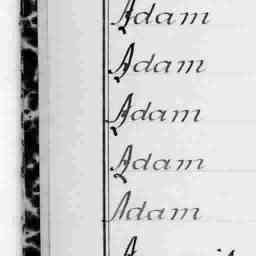 Adam
Adam
Adam
Adam
Adam